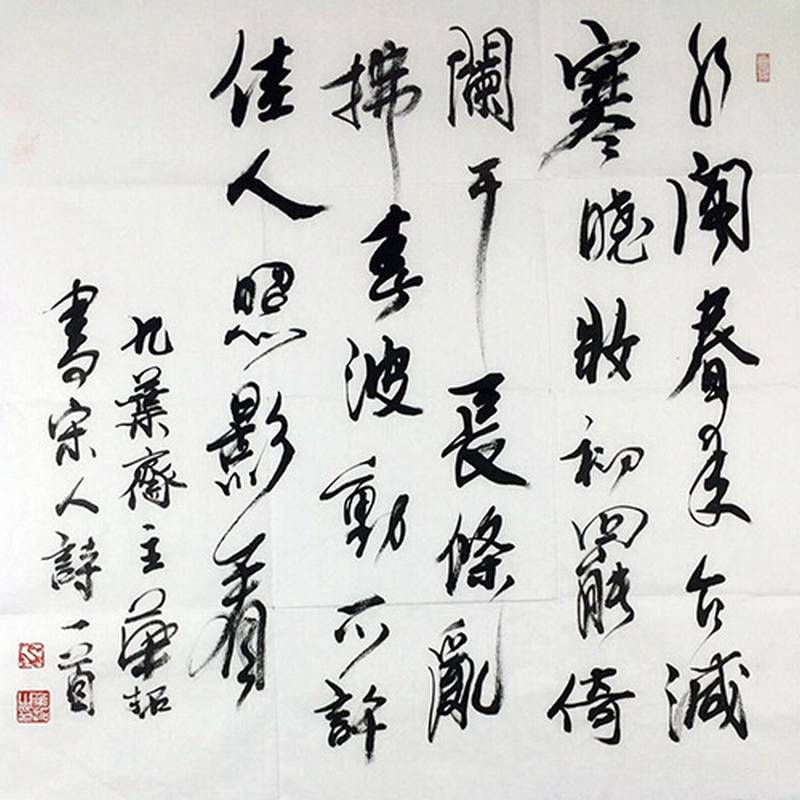 水閣春来乍減
寒曉妝初罷倚
闌干長條亂
拂春波動不許
佳人照影看
九葉齋主
書宋人詩一首